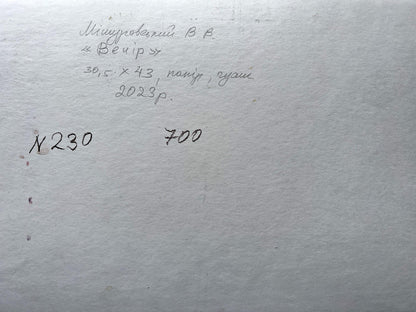 Мішуровський В В.
«Вечір»
30,5 × 43, папір, гуаш
2023р.
N 230 700